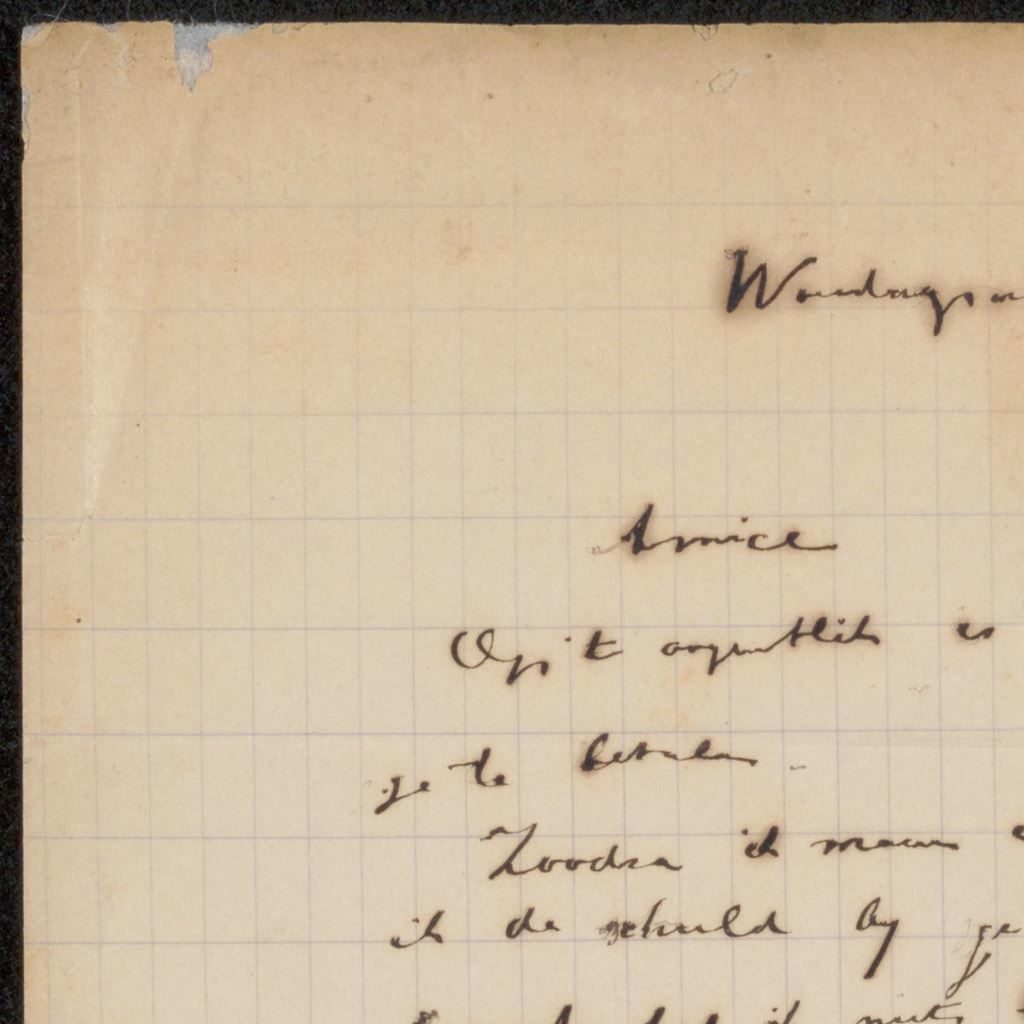 Woendags
Amice
Op 't oogenblik is
je te betalen.
Zoodra ik maar
ik de schuld by je
ik niets